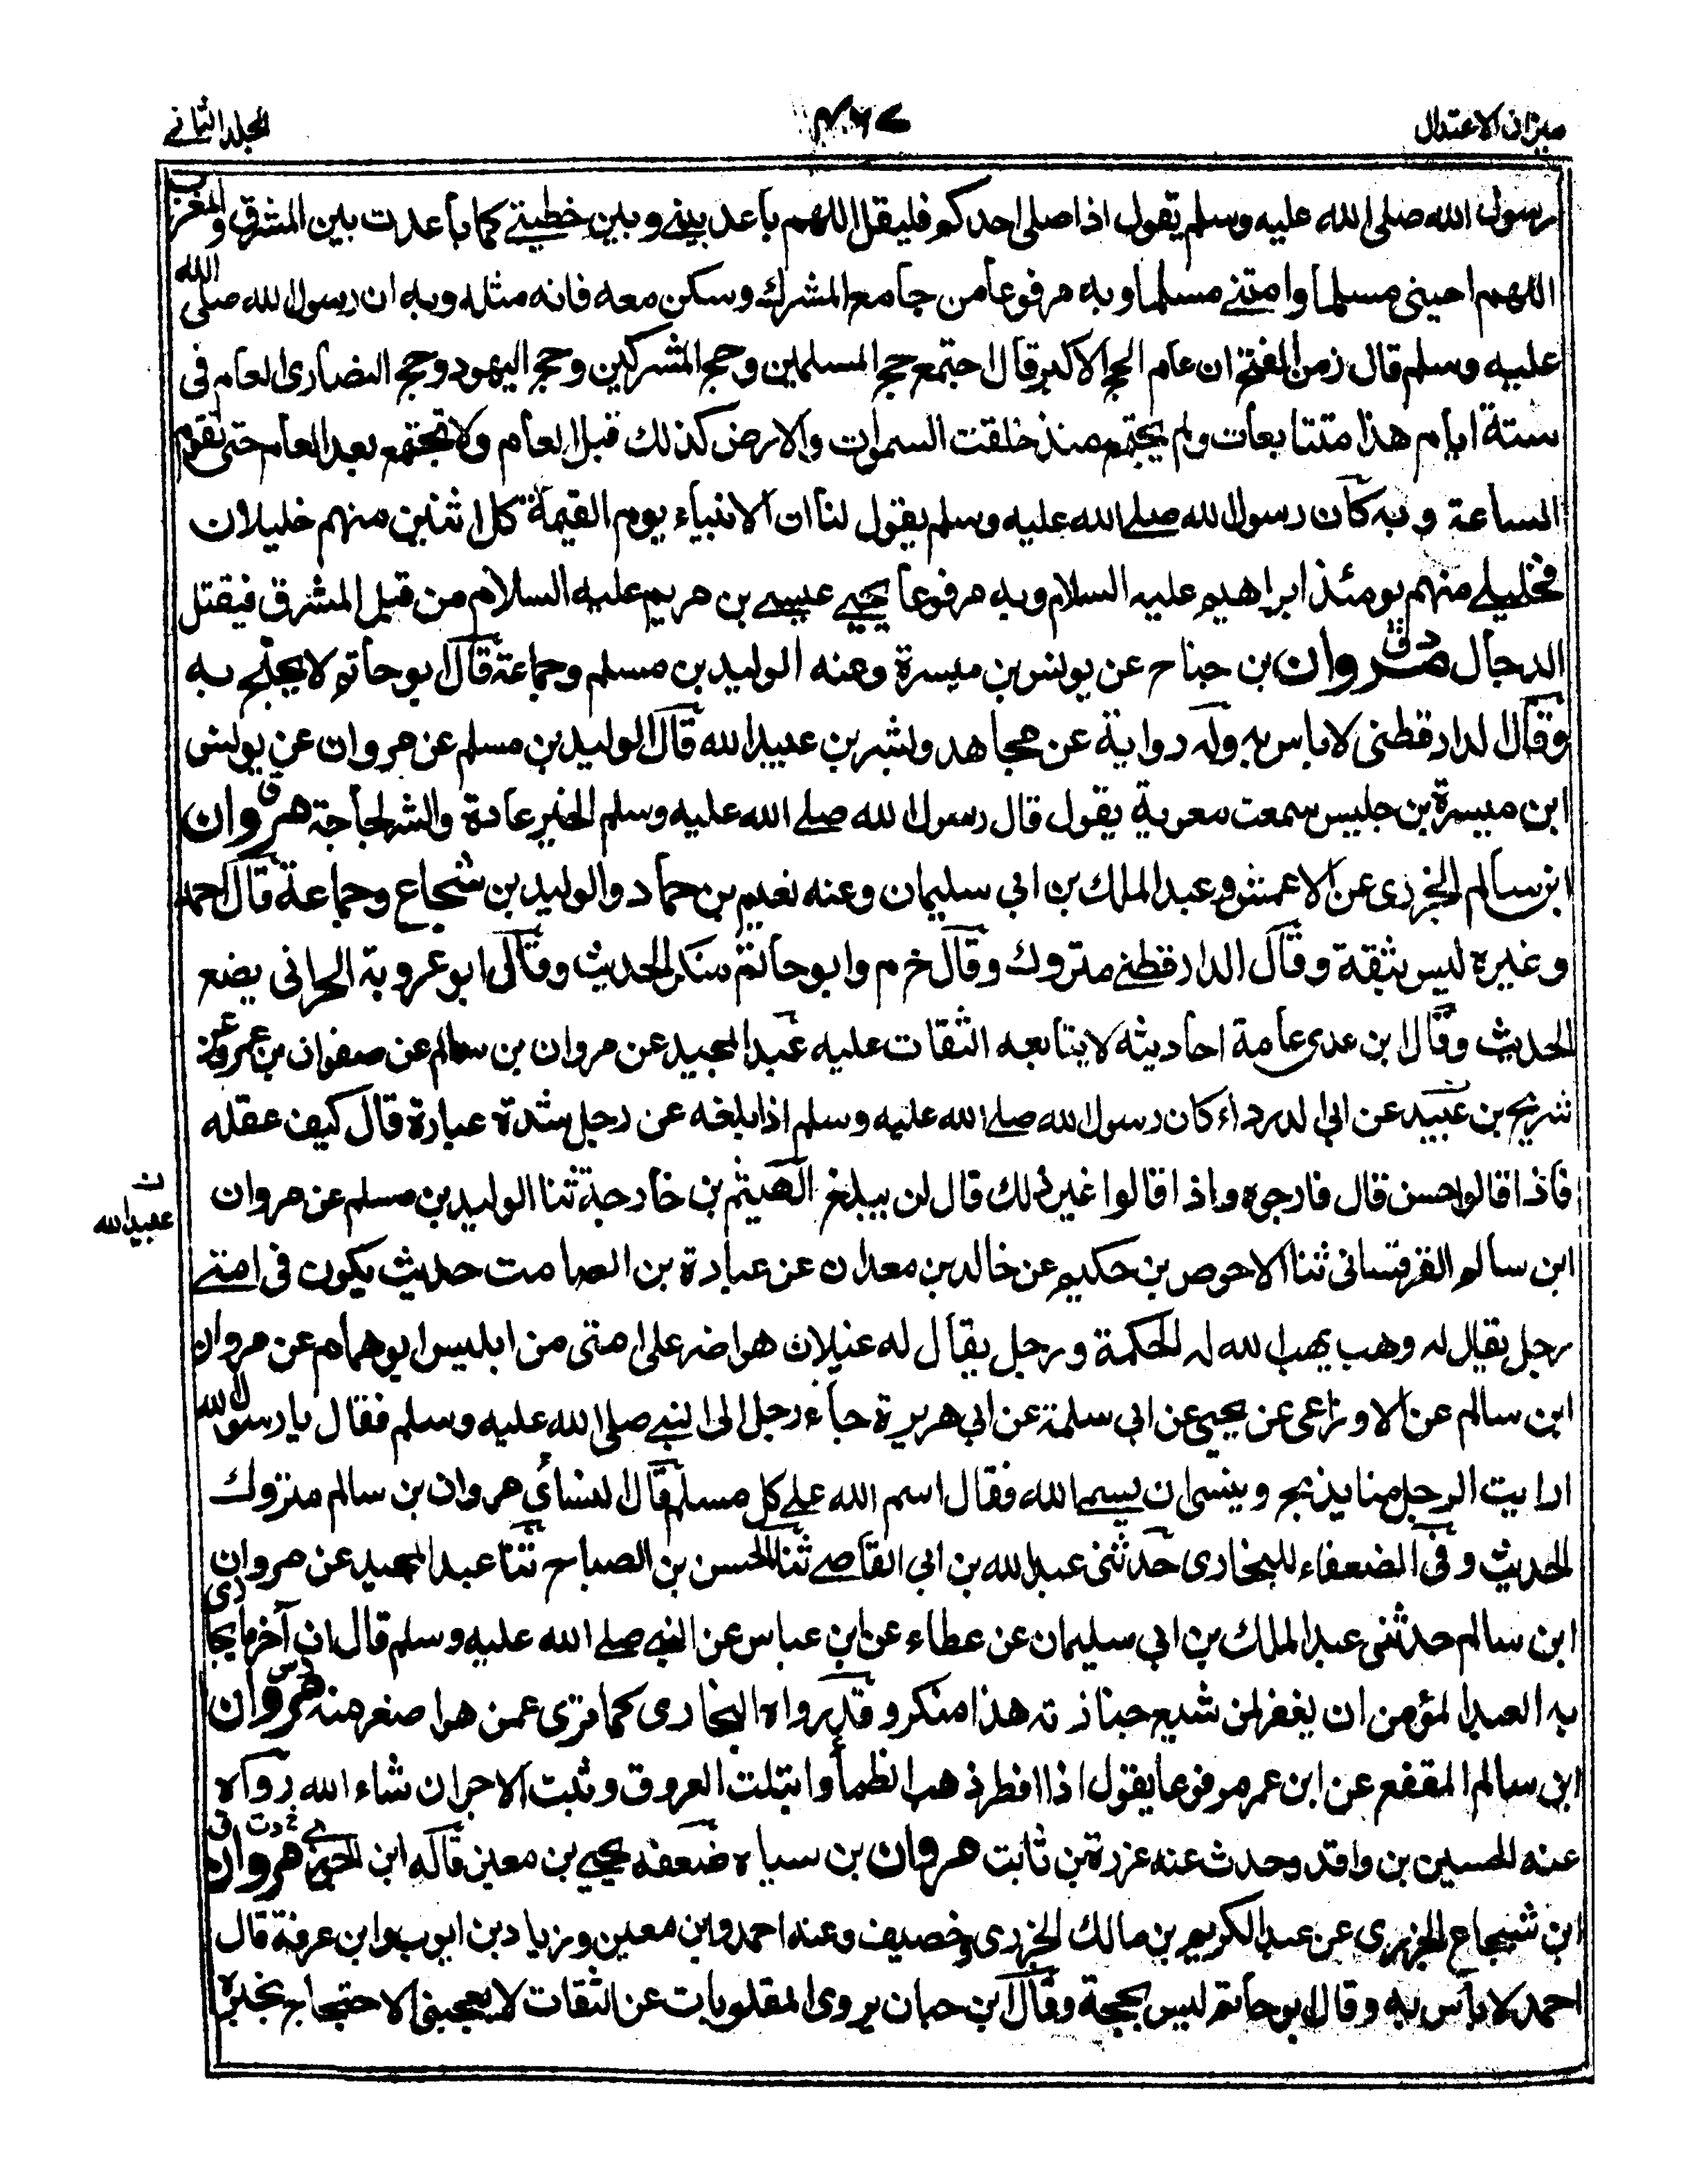 ميزان الاعتدال
المجلد الثانے
رسول الله صلى الله عليه وسلم يقول اذا صلى احدكم فليقل اللهم باعد بينے وبين خطيتے كما باعدت بين المشرق والمغرب
اللهم احينى مسلما وامتنے مسلما وبه مرفوعا من جامع المشرك وسكن معه فانه مثله وبه ان رسول الله صلى الله
عليه وسلم قال زمن الفتح ان عام الحج الاكبر قال اجتمع حج المسلمين وحج المشركين وحج اليهود وحج النصارى العام فى
ستة ايام هذا متتابعات ولم يجتمع منذ خلقت السموات والارض كذلك قبل العام ولا تجتمع بعد العام حتى تقوم
الساعة وبه كان رسول الله صلے الله عليه وسلم يقول لنا ان الانبياء يوم القيمة كل اثنين منهم خليلان
فخليلے منهم يومئذ ابراهيم عليه السلام وبه مرفوعا يجيے عيسے بن مريم عليه السلام من قبل المشرق فيقتل
الدجال مروان بن جناح عن يونس بن ميسرة وعنه الوليد بن مسلم وجماعة قال ابو حاتم لا يحتج به
وقال الدارقطنى لا باس به وله رواية عن مجاهد وبشر بن عبيد الله قال الوليد بن مسلم عن مروان عن يونس
ابن ميسرة بن حلبس سمعت معوية يقول قال رسول الله صلے الله عليه وسلم الخير عادة والشر لجاجة مروان
ابن سالم الجزرى عن الاعمش وعبد الملك بن ابي سليمان وعنه نعيم بن حماد والوليد بن شجاع وجماعة قال احمد
وغيره ليس بثقة وقال الدارقطنے متروك وقال خ م وابو حاتم منكر الحديث وقال ابو عروبة الحرانى يضع
الحديث وقال ابن عدى عامة احاديثه لا يتابعه الثقات عليه عبد المجيد عن مروان بن سالم عن صفوان بن عمرو عن
شريح بن عبيد عن ابي الدرداء كان رسول الله صلے الله عليه وسلم اذا بلغه عن رجل شدة عبارة قال كيف عقله
فاذا قالوا حسن قال فارجوه واذا قالوا غير ذلك قال لن يبلغ الهيثم بن خارجة ثنا الوليد بن مسلم عن مروان
ن
عبيد الله
ابن سالم القرقسانى ثنا الاحوص بن حكيم عن خالد بن معدان عن عبادة بن الصامت حديث يكون فى امتے
رجل يقال له وهب يهب الله له الحكمة ورجل يقال له غيلان هو اضر على امتى من ابليس ابو همام عن مروان
ابن سالم عن الاوزاعى عن يحيى عن ابي سلمة عن ابي هريرة جاء رجل الى النبے صلى الله عليه وسلم فقال يا رسول الله
ارايت الرجل منا يذبح وينسى ان يسمے الله فقال اسم الله علے كل مسلم قال النسائي مروان بن سالم متروك
الحديث وفى الضعفاء للبخارى حدثنى عبد الله بن ابى القاضے ثنا الحسن بن الصباح ثنا عبد المجيد عن مروان
ابن سالم حدثنى عبد الملك بن ابي سليمان عن عطاء عن ابن عباس عن النبے صلے الله عليه وسلم قال ان آخر ما يجازى
به العبد المؤمن ان يغفر لمن شيع جنازته هذا منكر وقد رواه البخارى كما ترى عمن هو اصغر منه مروان
ابن سالم المقفع عن ابن عمر مرفوعا يقول اذا افطر ذهب الظمأ وابتلت العروق وثبت الاجر ان شاء الله رواه
عنه الحسين بن واقد وحدث عنه عزرة بن ثابت مروان بن سياه ضعفه يحيے بن معين قاله ابن الجوزے مروان
ابن شجاع الجزرى عن عبد الكريم بن مالك الجزرى وخصيف وعنه احمد وابن معين وزياد بن ايوب وابن عرفة قال
احمد لا بأس به وقال ابو حاتم ليس بحجة وقال ابن حبان يروى المقلوبات عن الثقات لا يعجبنى الاحتجاج بخبره